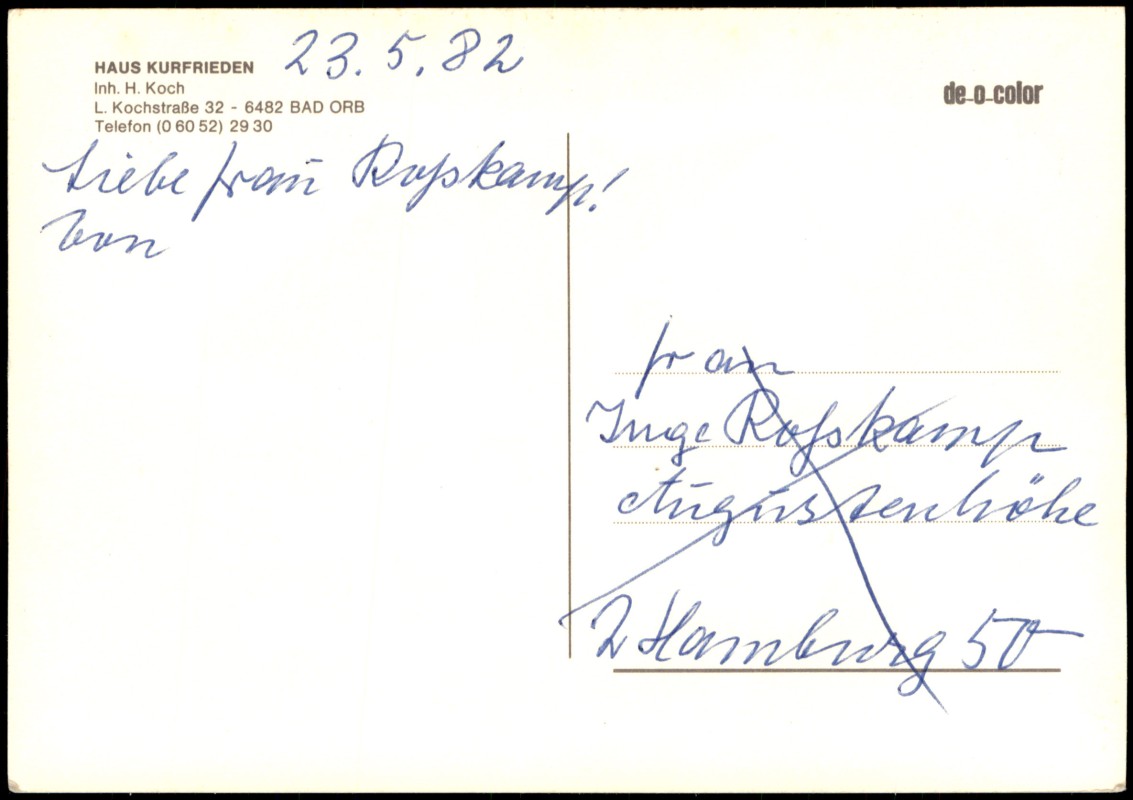 HAUS KURFRIEDEN
23.5.82
Inh. H. Koch
L. Kochstraße 32 - 6482 BAD ORB
Telefon (0 60 52) 29 30
de-o-color
Liebe Frau Roßkamp!
Von
Frau
Inge Roßkamp
Augustenhöhe
2 Hamburg 50